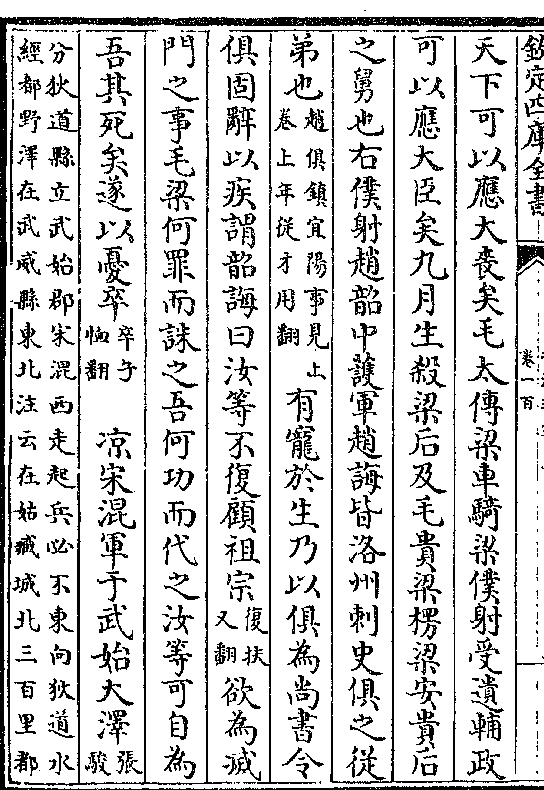 欽定四庫全書
卷一百
天下可以應大喪矣毛太傅梁車騎梁僕射受遺輔政
可以應大臣矣九月生殺梁后及毛貴梁楞梁安貴后
之舅也右僕射趙韶中護軍趙誨皆洛州刺史俱之從
弟也趙俱鎮宜陽事見上卷上年從才用翻有寵於生乃以俱為尚書令
俱固辭以疾謂韶誨曰汝等不復顧祖宗復扶又翻欲為滅
門之事毛梁何罪而誅之吾何功而代之汝等可自為
吾其死矣遂以憂卒卒子恤翻 凉宋混軍于武始大澤張駿
分狄道縣立武始郡宋混西走起兵必不東向狄道水
經都野澤在武威縣東北注云在姑臧城北三百里都